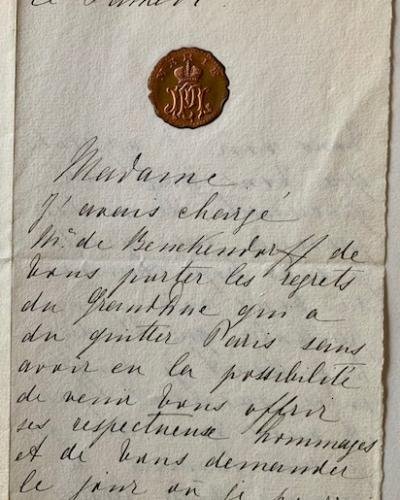 ce Samedi.
MARIE
Madame
J'avais chargé
Mr. de Benckendorff de
vous porter les regrets
du Grandduc qui a
du quitter Paris sans
avoir eu la possibilité
de venir vous offrir
ses respectueux hommages
et de vous demander
le jour où je